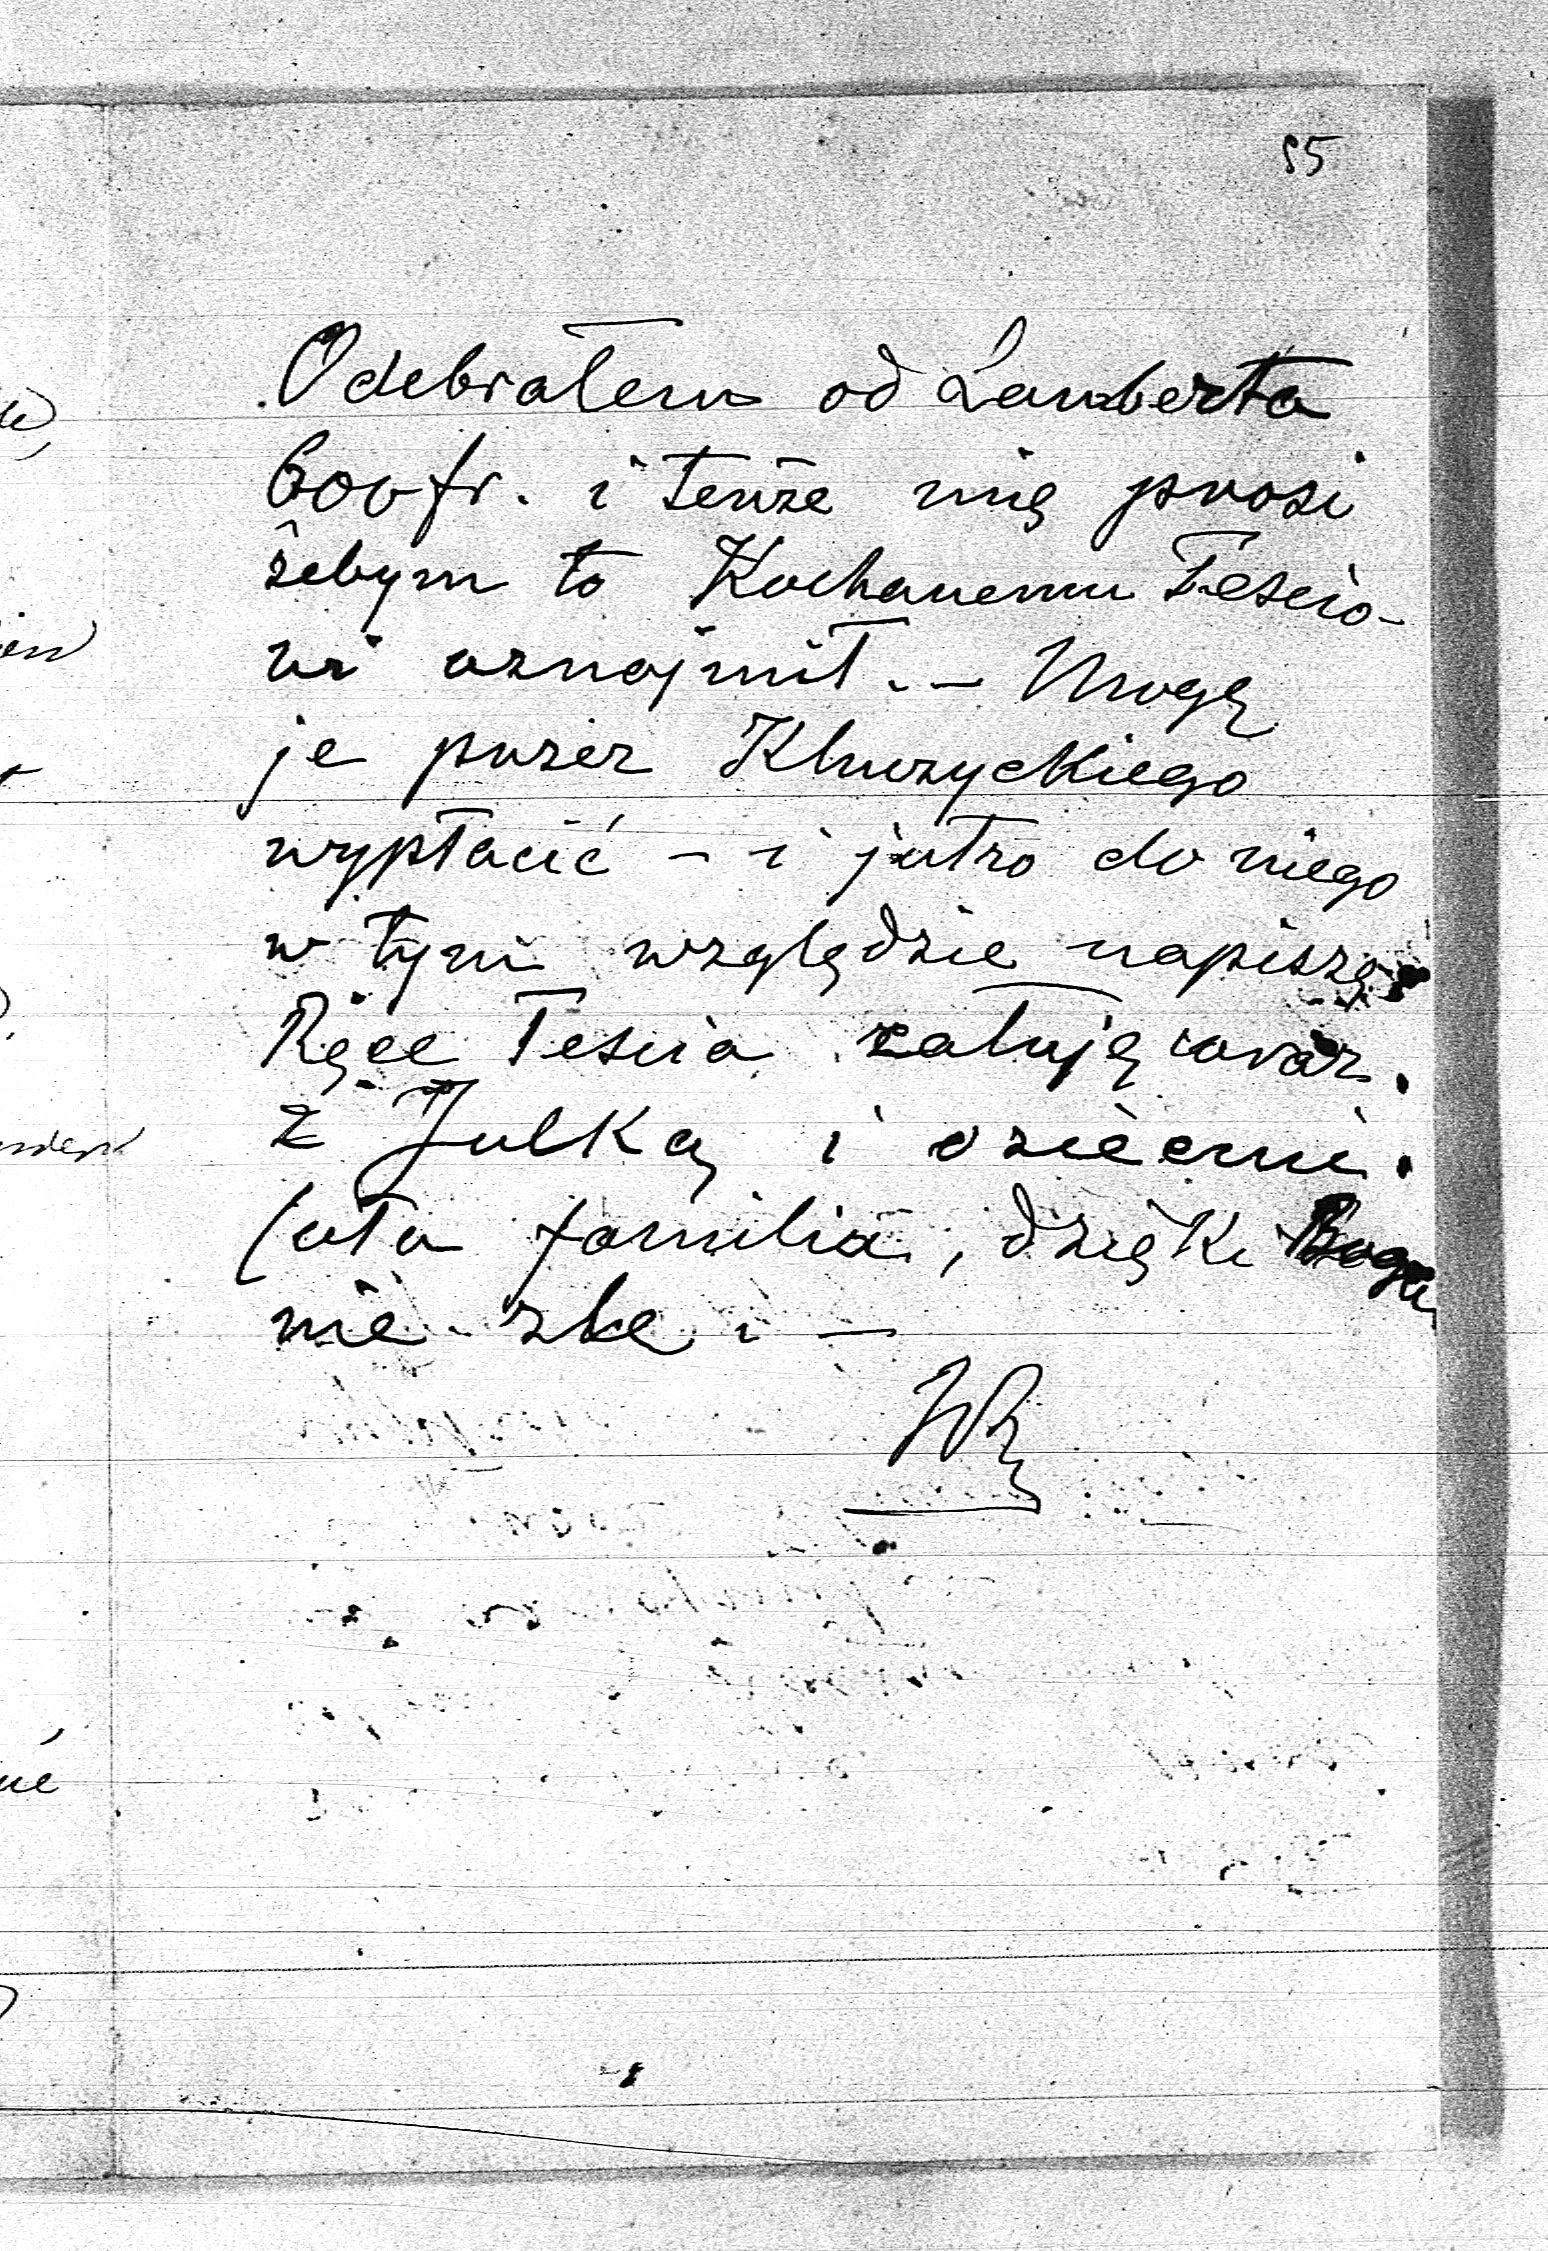 85
Odebrałem od Lamberta
600 fr. i tenże mię prosi
żebym to Kochanemu Teścio-
wi oznajmił. — Mogę
je przez Kluczyckiego
wypłacić – i jutro do niego
w tym względzie napiszę.
Ręce Teścia całuję wraz
z Julką i dziećmi.
Cała familia, dzięki Bogu
nie źle. —
WR